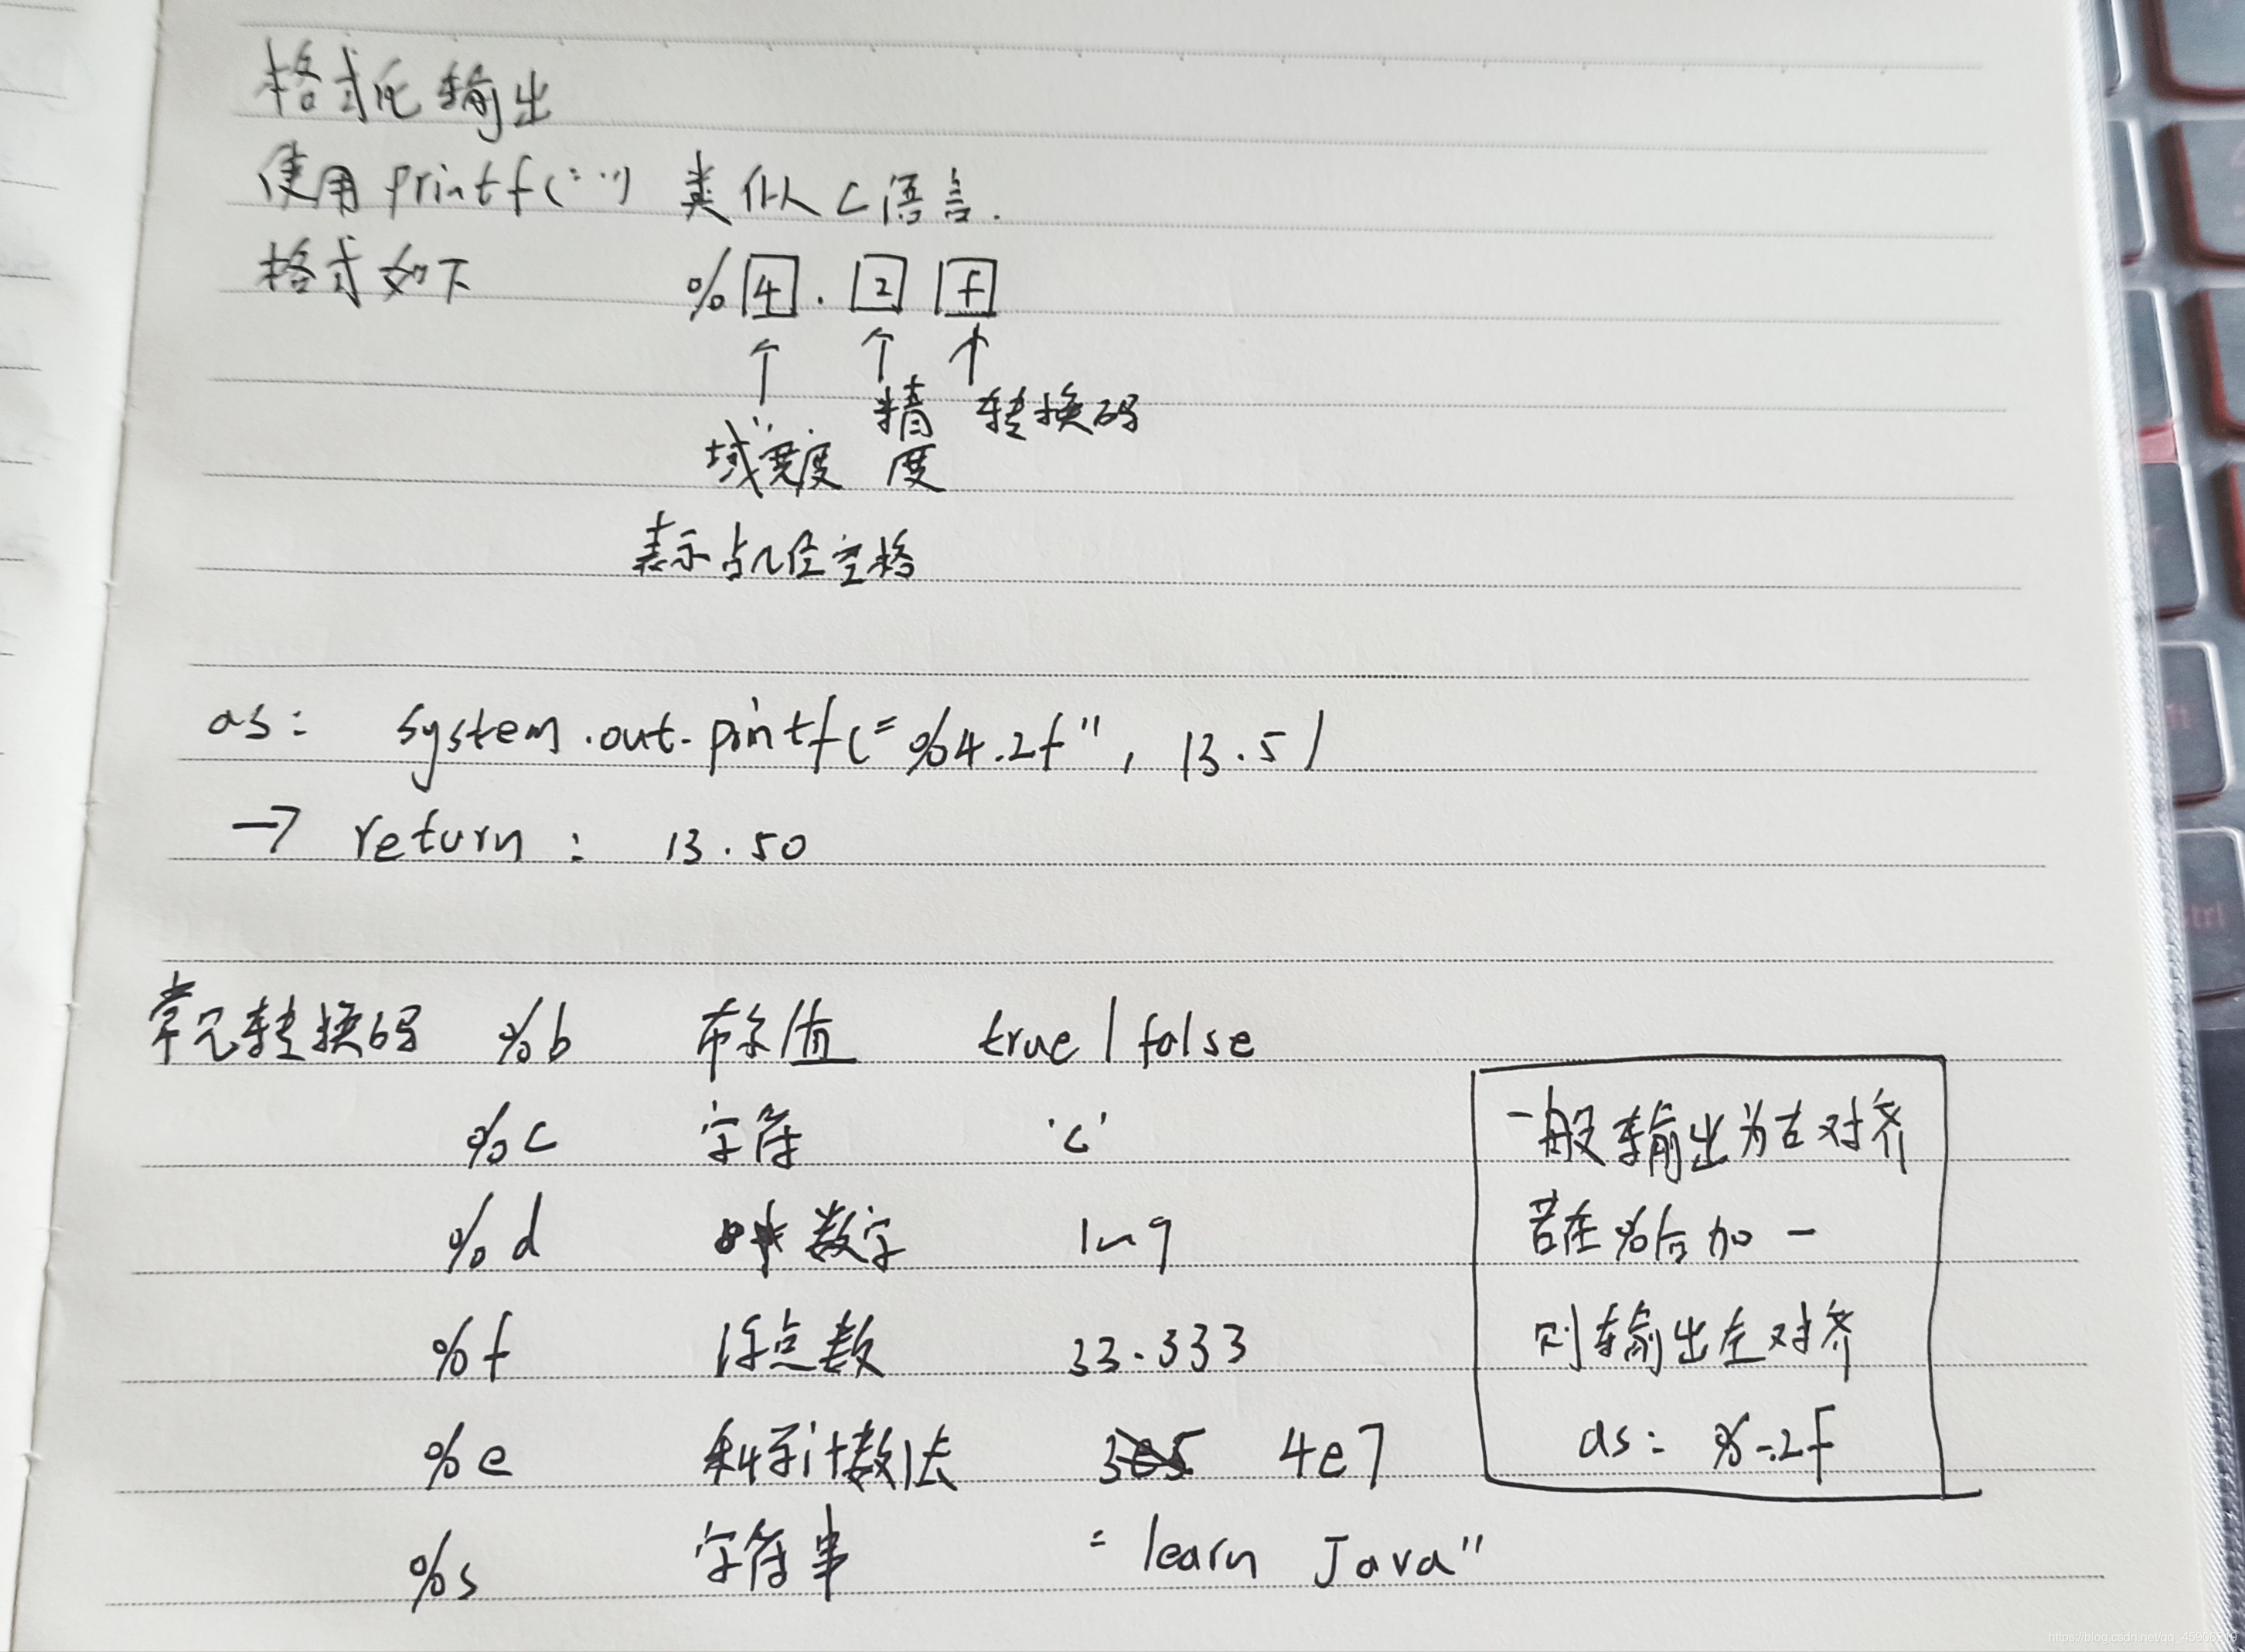 格式化输出
使用 printf("..") 类似C语言.
格式如下 % 4 . 2 f
域宽度 精度 转换码
表示占几位空格
as: system.out.printf("%4.2f", 13.5)
→ return: 13.50
常见转换码 %b 布尔值 true | false
%c 字符 'c'
%d 数字 1~9
%f 浮点数 33.333
%e 科学计数法 4e7
%s 字符串 "learn Java"
一般输出为右对齐
若在%后加 -
则输出左对齐
as: %-.2f
https://blog.csdn.net/qq_45906